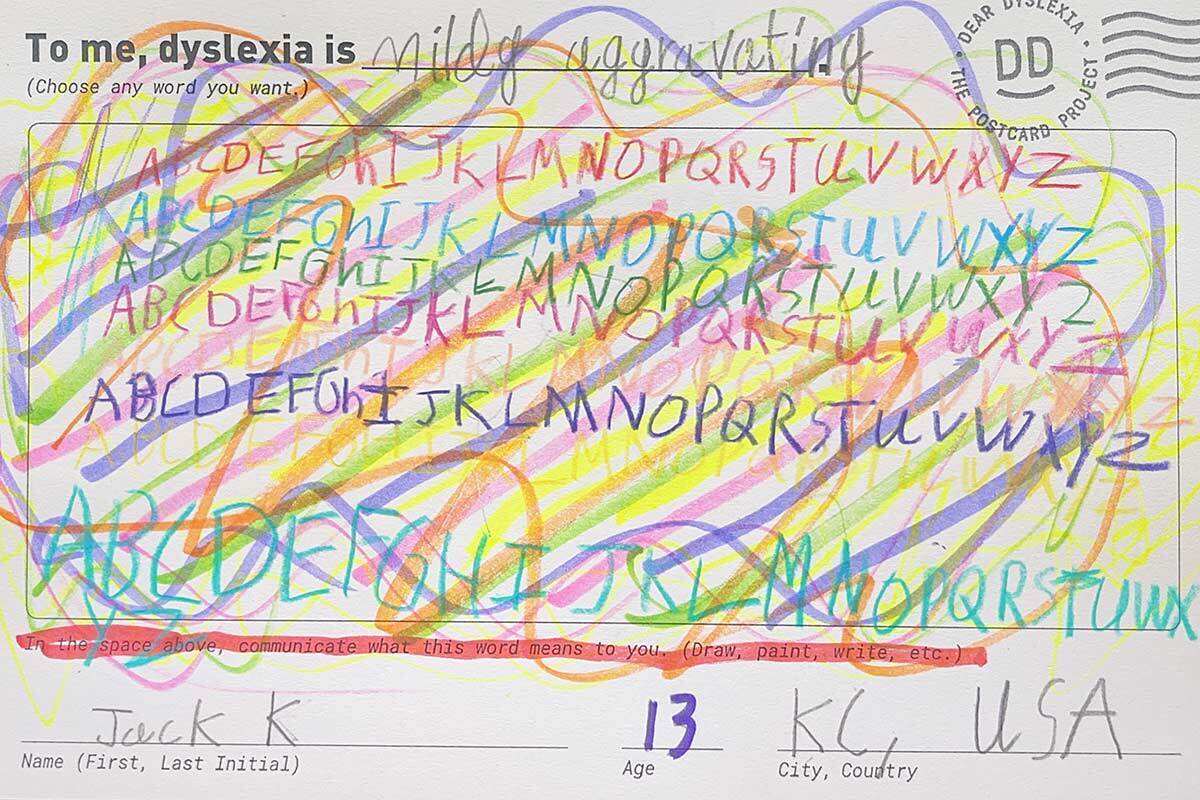 To me, dyslexia is mildy aggravating
(Choose any word you want.)
DEAR DYSLEXIA
DD
THE POSTCARD PROJECT
ABCDEFGhIJKLMNOPQRSTUVWXYZ
ABCDEFGhIJKLMNOPQRSTUVWXYZ
ABCDEFGhIJKLMNOPQRSTUVWXYZ
ABCDEFGhIJKLMNOPQRSTUVWXYZ
ABCDEFGhIJKLMNOPQRSTUVWXYZ
ABCDEFGHIJKLMNOPQRSTUWX
YZ
In the space above, communicate what this word means to you. (Draw, paint, write, etc.)
Jack K
13
KC, USA
Name (First, Last Initial)
Age
City, Country